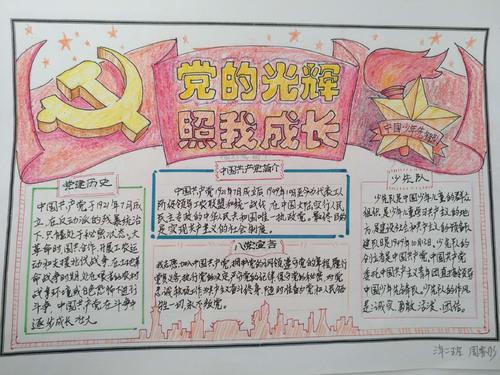 党的光辉
照我成长
中国少年先锋队
党建历史
中国共产党于1921年7月成
立，在反动派的残暴统治
下，只能处于松散状态。大
革命时，国共合作，开展工农运
动和支援北伐战争。在土地革
命战争时期，处在很落的农村
战争环境或白色恐怖下进行
斗争，中国共产党在斗争中
逐步成长壮大。
中国共产党简介
中国共产党1921年7月成立后，1949年10月至今为代表工人
阶级领导工农联盟和统一战线，在中国大陆实行人民
民主专政的中华人民共和国唯一执政党。最终目的
是实现共产主义的社会制度。
入党宣告
我志愿加入中国共产党，拥护党的纲领，遵守党的章程，履行
党员义务，执行党的决定，严守党的纪律，保守党的秘密，对党
忠诚，积极工作，为共产主义奋斗终身，随时准备为党和人民牺
牲一切，永不叛党。
少先队
少先队是中国少年儿童的群众
组织，是少年儿童学习共产主义的地
方，是建设社会主义和共产主义的预备队。
建队日是1949年10月13日，少先队的
创立者是中国共产党，中国共产党
委托中国共产主义青年团直接领导
中国少年先锋队。少先队的作风
是：诚实、勇敢、活泼、团结。
二班 周